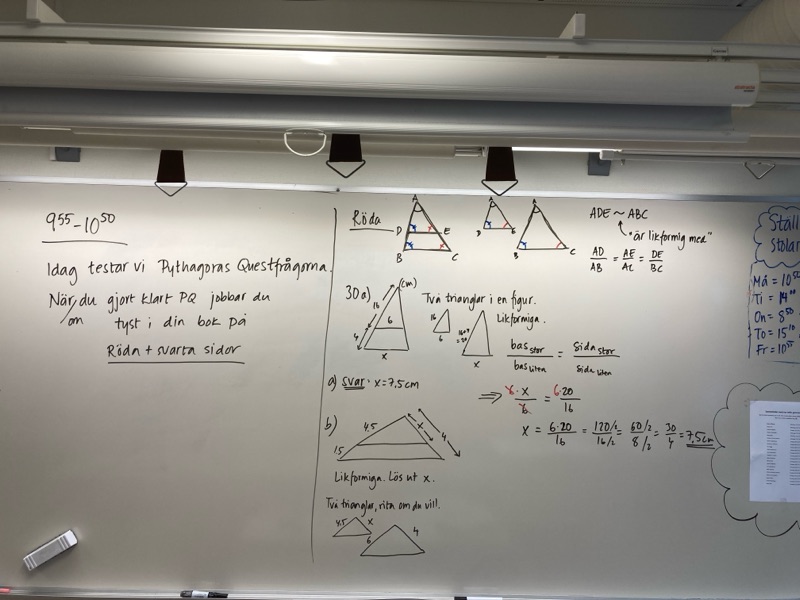 9⁵⁵-10⁵⁰
Idag testar vi Pythagoras Questfrågorna.
När du gjort klart PQ jobbar du
/en tyst i din bok på
Röda + svarta sidor
Röda
A
D E
B C
A
D E
A
B C
ADE ~ ABC
"är likformig med"
AD/AB = AE/AC = DE/BC
30a)
(cm)
16
6
4
x
Två trianglar i en figur.
Likformiga.
16
6
16+4
=20
x
bas stor/bas liten = sida stor/sida liten
a) svar: x = 7,5cm
⇒ 6·x/6 = 6·20/16
x = 6·20/16 = 120/2/16/2 = 60/2/8/2 = 30/4 = 7,5cm
b)
4.5
x
4
15
Likformiga. Lös ut x.
Två trianglar, rita om du vill.
4.5 x
6 4
Ställ
Stolar
Må = 10⁵⁰
Ti = 14⁰⁰
On = 8⁵⁰
To = 15¹⁰
Fr = 10⁵⁵